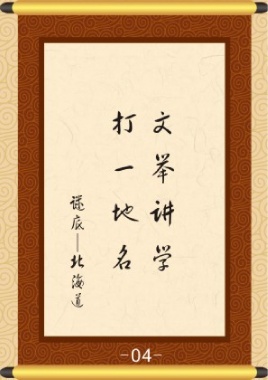 文举讲学
打一地名
谜底——北海道
-04-